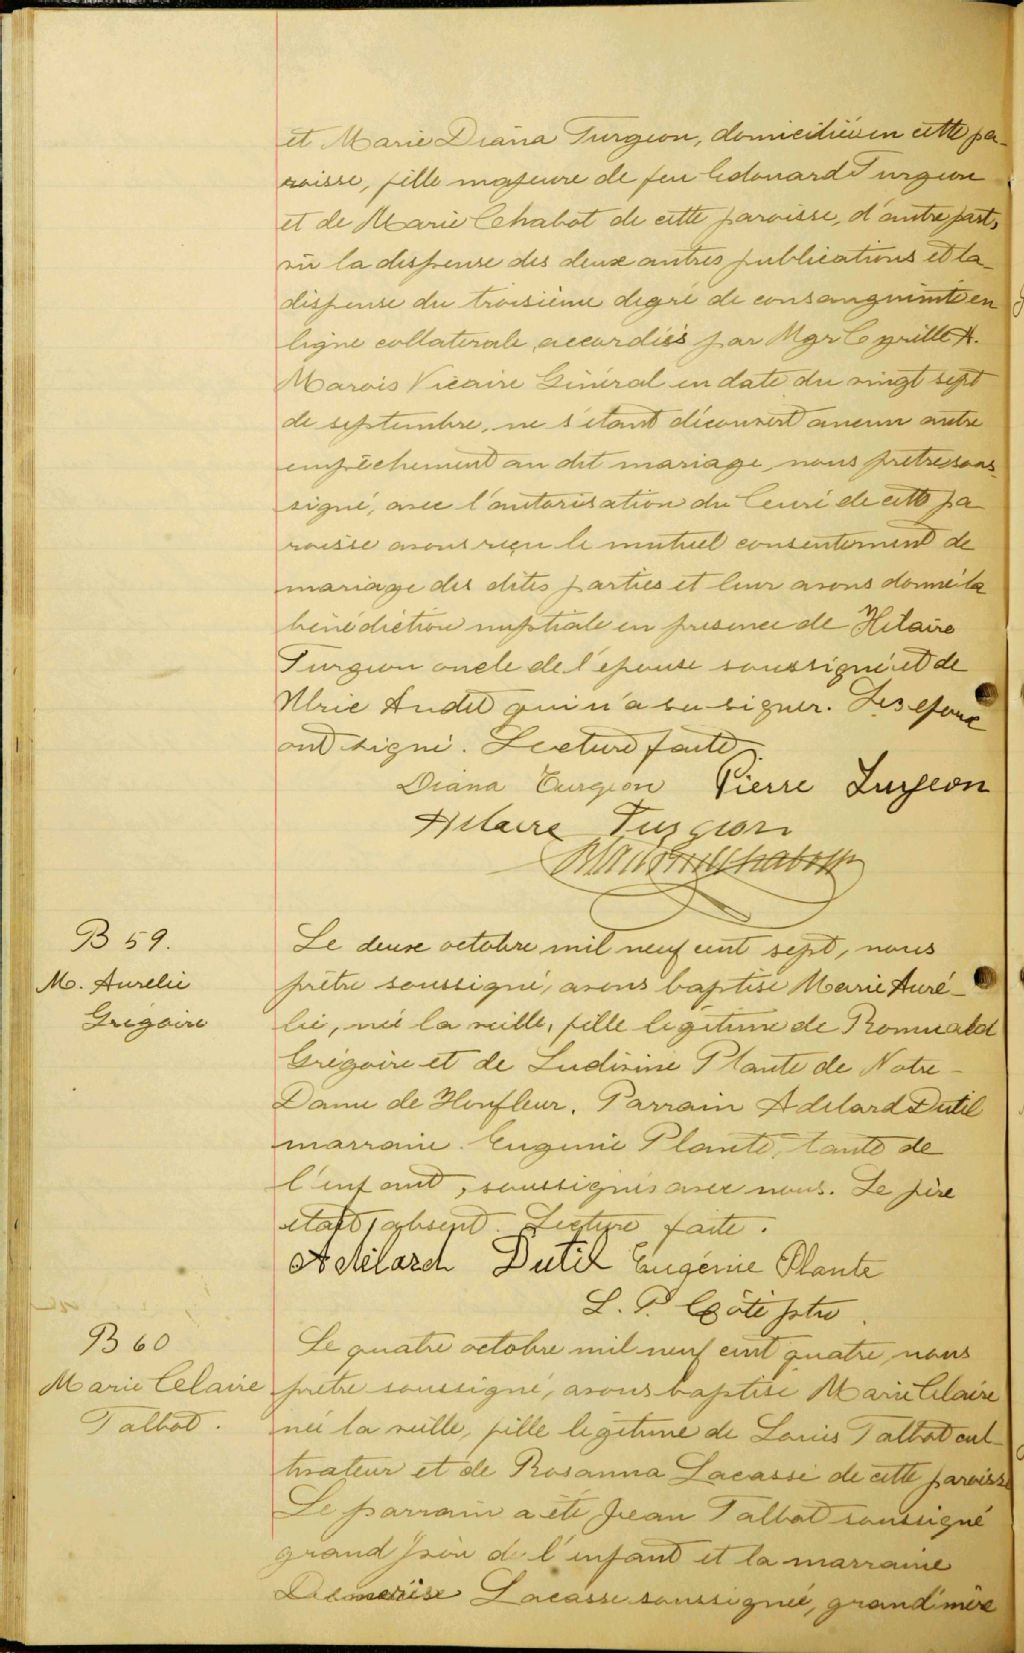 et Marie Diana Turgeon, domiciliée en cette pa-
roisse, fille majeure de feu Edouard Turgeon
et de Marie Chabot de cette paroisse, d'autre part,
vu la dispense des deux autres publications et la
dispense du troisième degré de consanguinité en
ligne collaterale accordées par Mgr Cyrille A.
Marois Vicaire Général en date du vingt sept
de septembre, ne s'étant découvert aucun autre
empêchement au dit mariage, nous prêtre sous-
signé, avec l'autorisation du Curé de cette pa
roisse avons reçu le mutuel consentement de
mariage des dites parties et leur avons donné la
bénédiction nuptiale en presence de Hilaire
Turgeon oncle de l'épouse soussigné et de
Ulric Audet qui n'a su signer. Les epoux
ont signé. Lecture faite.
Diana Turgeon Pierre Turgeon
Hilaire Turgeon
B 59.
M. Aurelie
Grégoire
Le deux octobre mil neuf cent sept, nous
prêtre soussigné, avons baptisé Marie Auré-
lie, née la veille, fille légitime de Romuald
Grégoire et de Ludivine Plante de Notre-
Dame de Honfleur. Parrain Adelard Dutil
marraine Eugenie Plante, tante de
l'enfant, soussignés avec nous. Le père
etait absent. Lecture faite.
Adélard Dutil Eugénie Plante
L. P. Côté ptre.
B 60
Marie Claire
Talbot.
Le quatre octobre mil neuf cent quatre, nous
prêtre soussigné, avons baptisé Marie Claire
née la veille, fille légitime de Louis Talbot cul-
tivateur et de Rosanna Lacasse de cette paroisse
Le parrain a été Jean Talbot soussigné
grand'père de l'enfant et la marraine
Demerise Lacasse soussignée, grand'mère